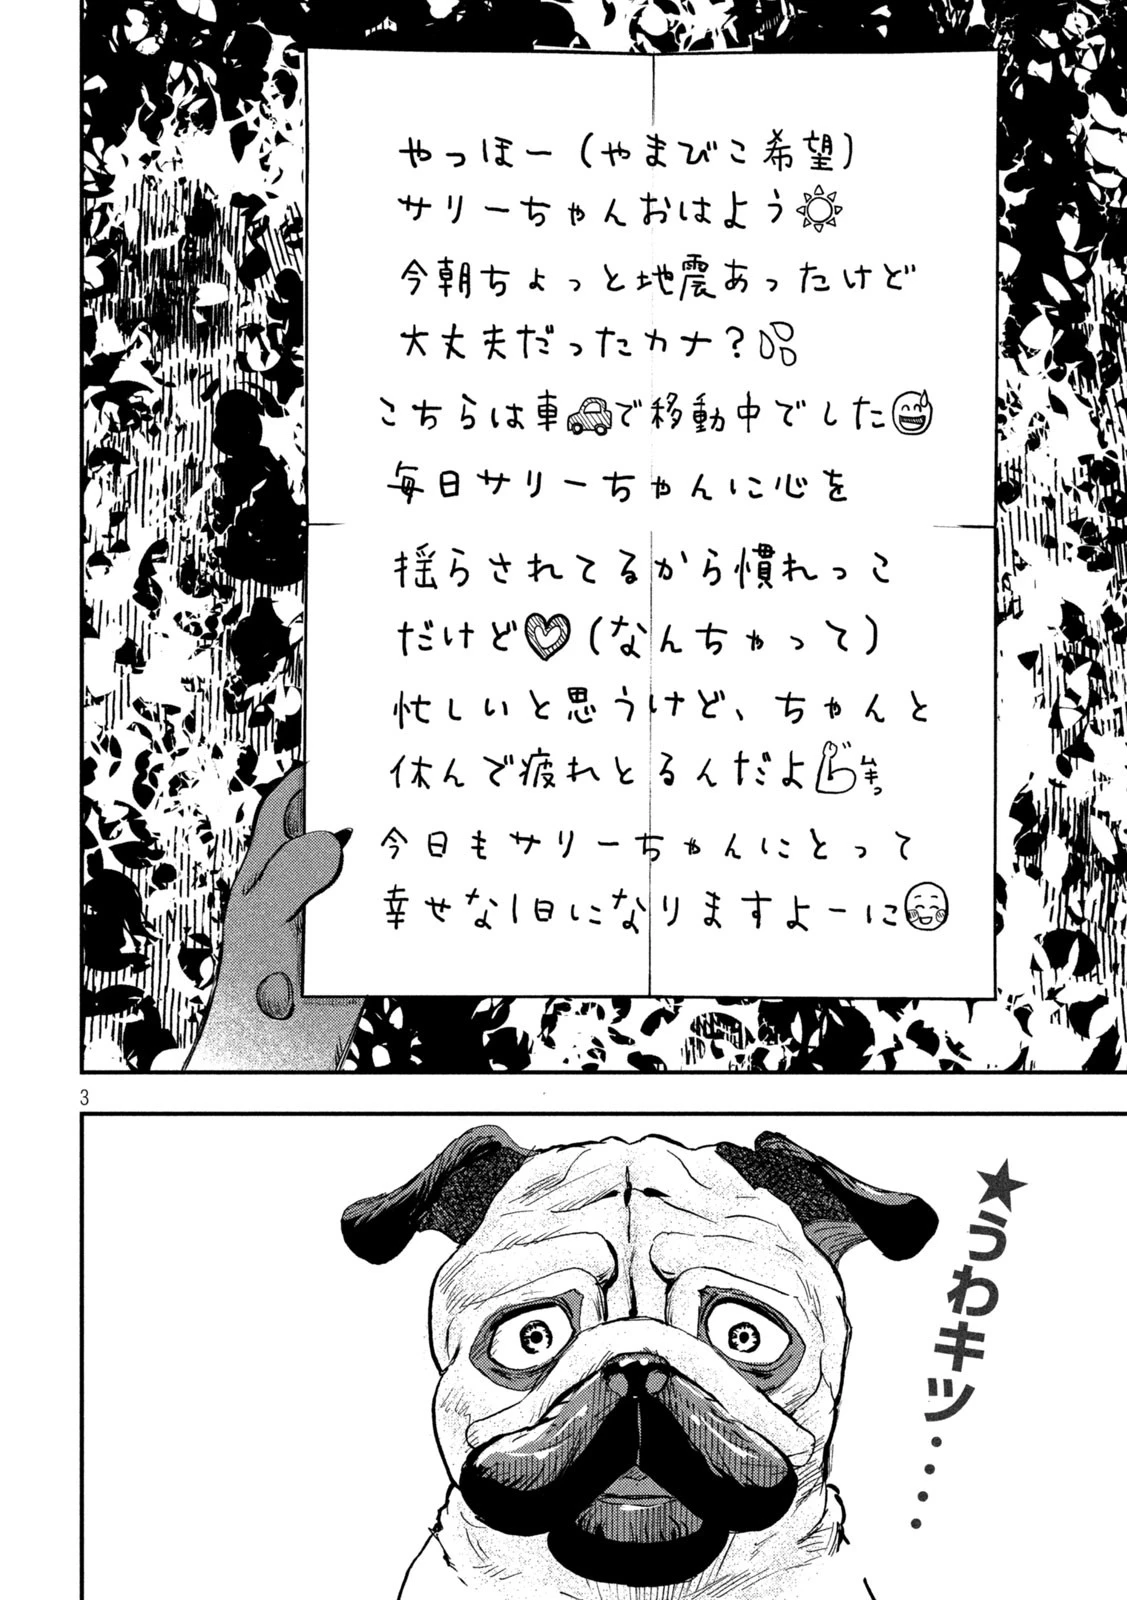 やっほー(やまびこ希望)
サリーちゃんおはよう
今朝ちょっと地震あったけど
大丈夫だったカナ?
こちらは車で移動中でした
毎日サリーちゃんに心を
揺らされてるから慣れっこ
だけど(なんちゃって)
忙しいと思うけど、ちゃんと
休んで疲れとるんだよ
ムキっ
今日もサリーちゃんにとって
幸せな1日になりますよーに
3
★うわキツ・・・・